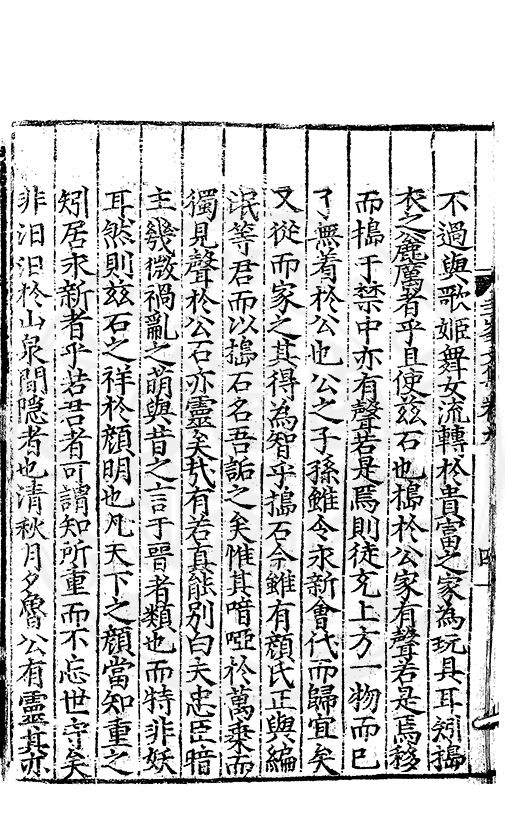 不過與歌姬舞女流轉於貴富之家為玩具耳矧搗
衣之麄厲者乎且使茲石也搗於公家有聲若是焉移
而搗于禁中亦有聲若是焉則徒充上方一物而已
了無着於公也公之子孫雖令求新會代而歸宜矣
又從而家之其得為智乎搗石令雖有顏氏正與編
氓等君而以搗石名吾詬之矣惟其喑啞於萬乗而
獨見聲於公石亦靈矣㢤有若真能別白夫忠臣暗
主幾微禍亂之萌與昔之言于晉者類也而特非妖
耳然則茲石之祥於顏明也凡天下之顏當知重之
矧居求新者乎若吾者可謂知所重而不忘世守矣
非汨汨於山泉間隱者也清秋月夕魯公有靈其亦